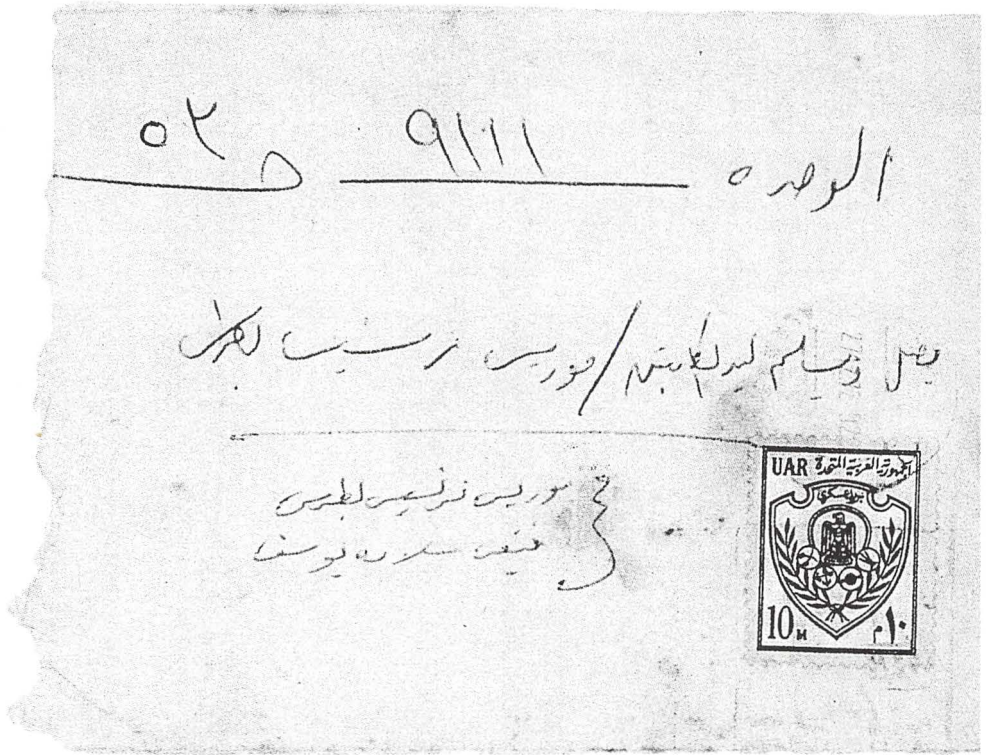 الوحده ٩١١١ ح ٥٣
يصل ويسلم ليد الكابتن / موريس نرسيس بطرس
موريس نرسيس بطرس
يوسف
UAR الجمهورية العربية المتحدة
بريد عسكري
10 M ١٠ م